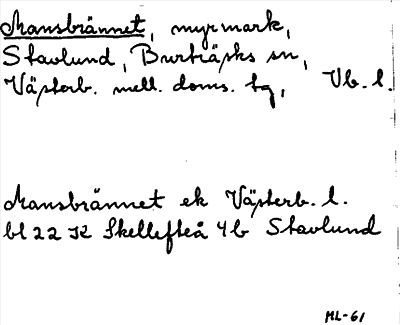 Mansbrännet, myrmark,
Stavlund, Burträsks sn,
Västerb. mell. doms. tg, Vb. l.
Mansbrännet ek Västerb. l.
bl 22 K Skellefteå 4b Stavlund
ML-61